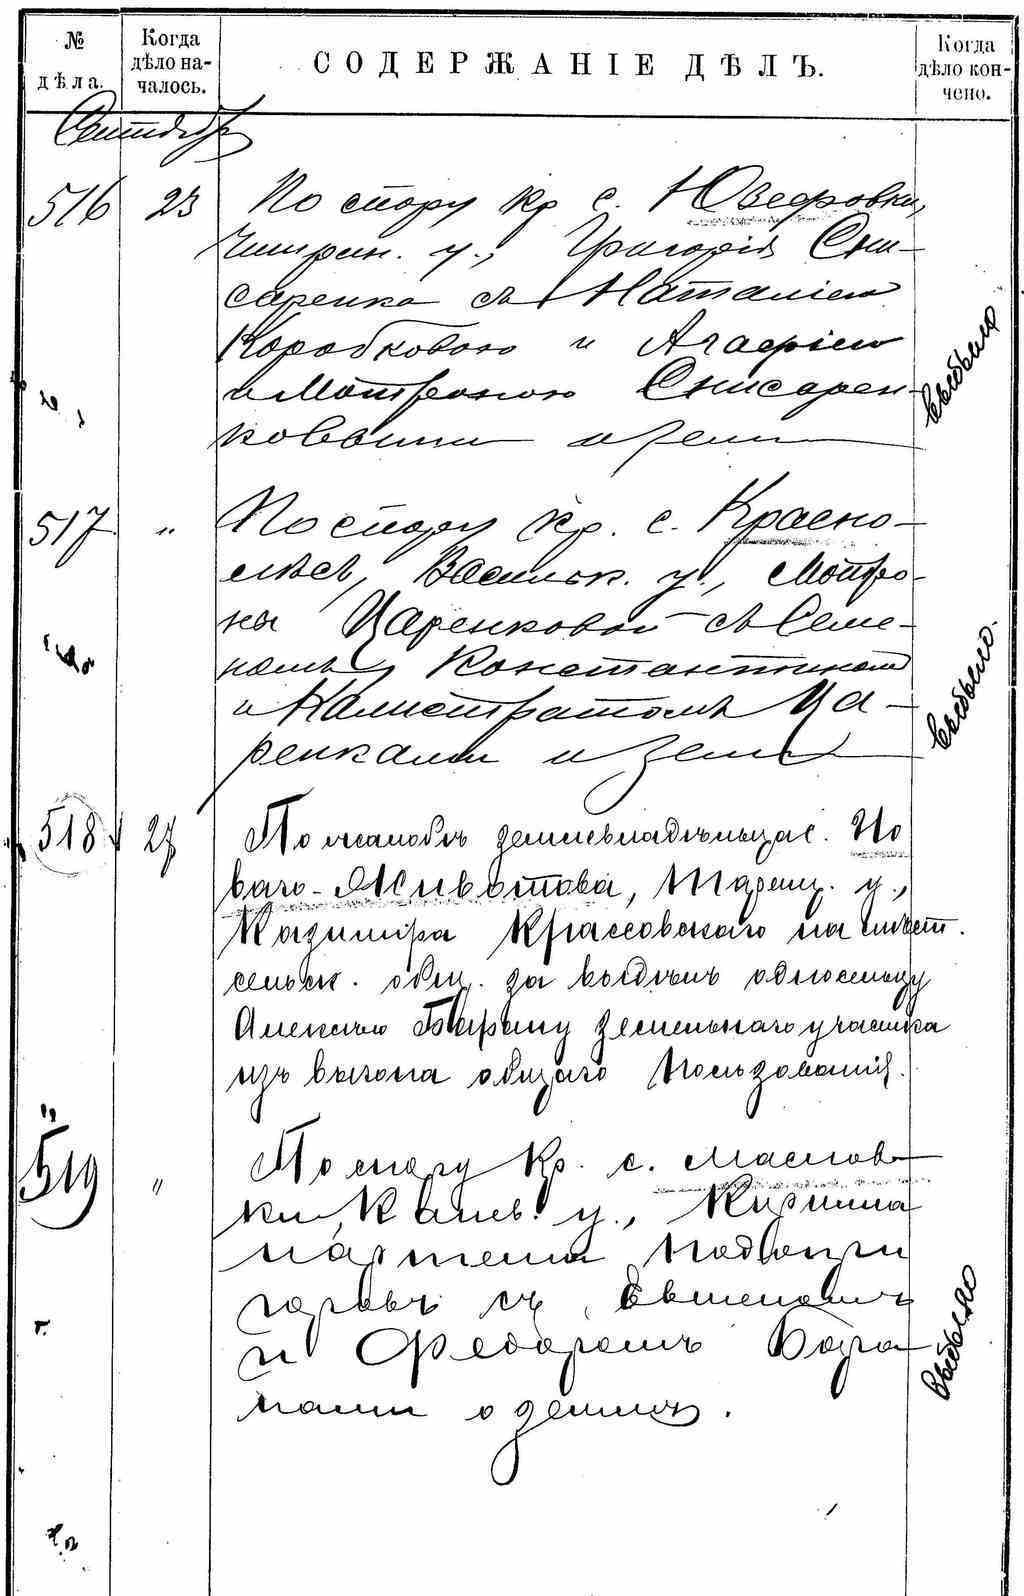 № дѣла.
Когда дѣло началось.
СОДЕРЖАНІЕ ДѢЛЪ.
Когда дѣло кончено.
Сентябрь
516 23 По спору кр. с. Юзефовки,
Чигирин. у., Григорія Сни-
саренка съ Наталіею
Коробковою и Агафіею
и Мотроною Снисарен-
ковыми о земл
выбыло
517 " По спору кр. с. Красно-
лѣсъ, Васильк. у., Мотро-
ны Царенковой съ Семе-
номъ, Константиномъ
и Калистратомъ Ца-
ренками о земл
выбыло.
518 27 По жалобѣ землевладѣльца с. Но
ваго-Животова, Таращ. у.,
Казиміра Крассовскаго на мѣст.
сельск. общ. за выдѣлъ односельцу
Алексѣю Барану земельнаго участка
изъ выгона общаго пользованія.
519 " По спору кр. с. Маслов-
ки, Канев. у., Кирилла
съ
и Федоромъ
о землѣ.
выбыло